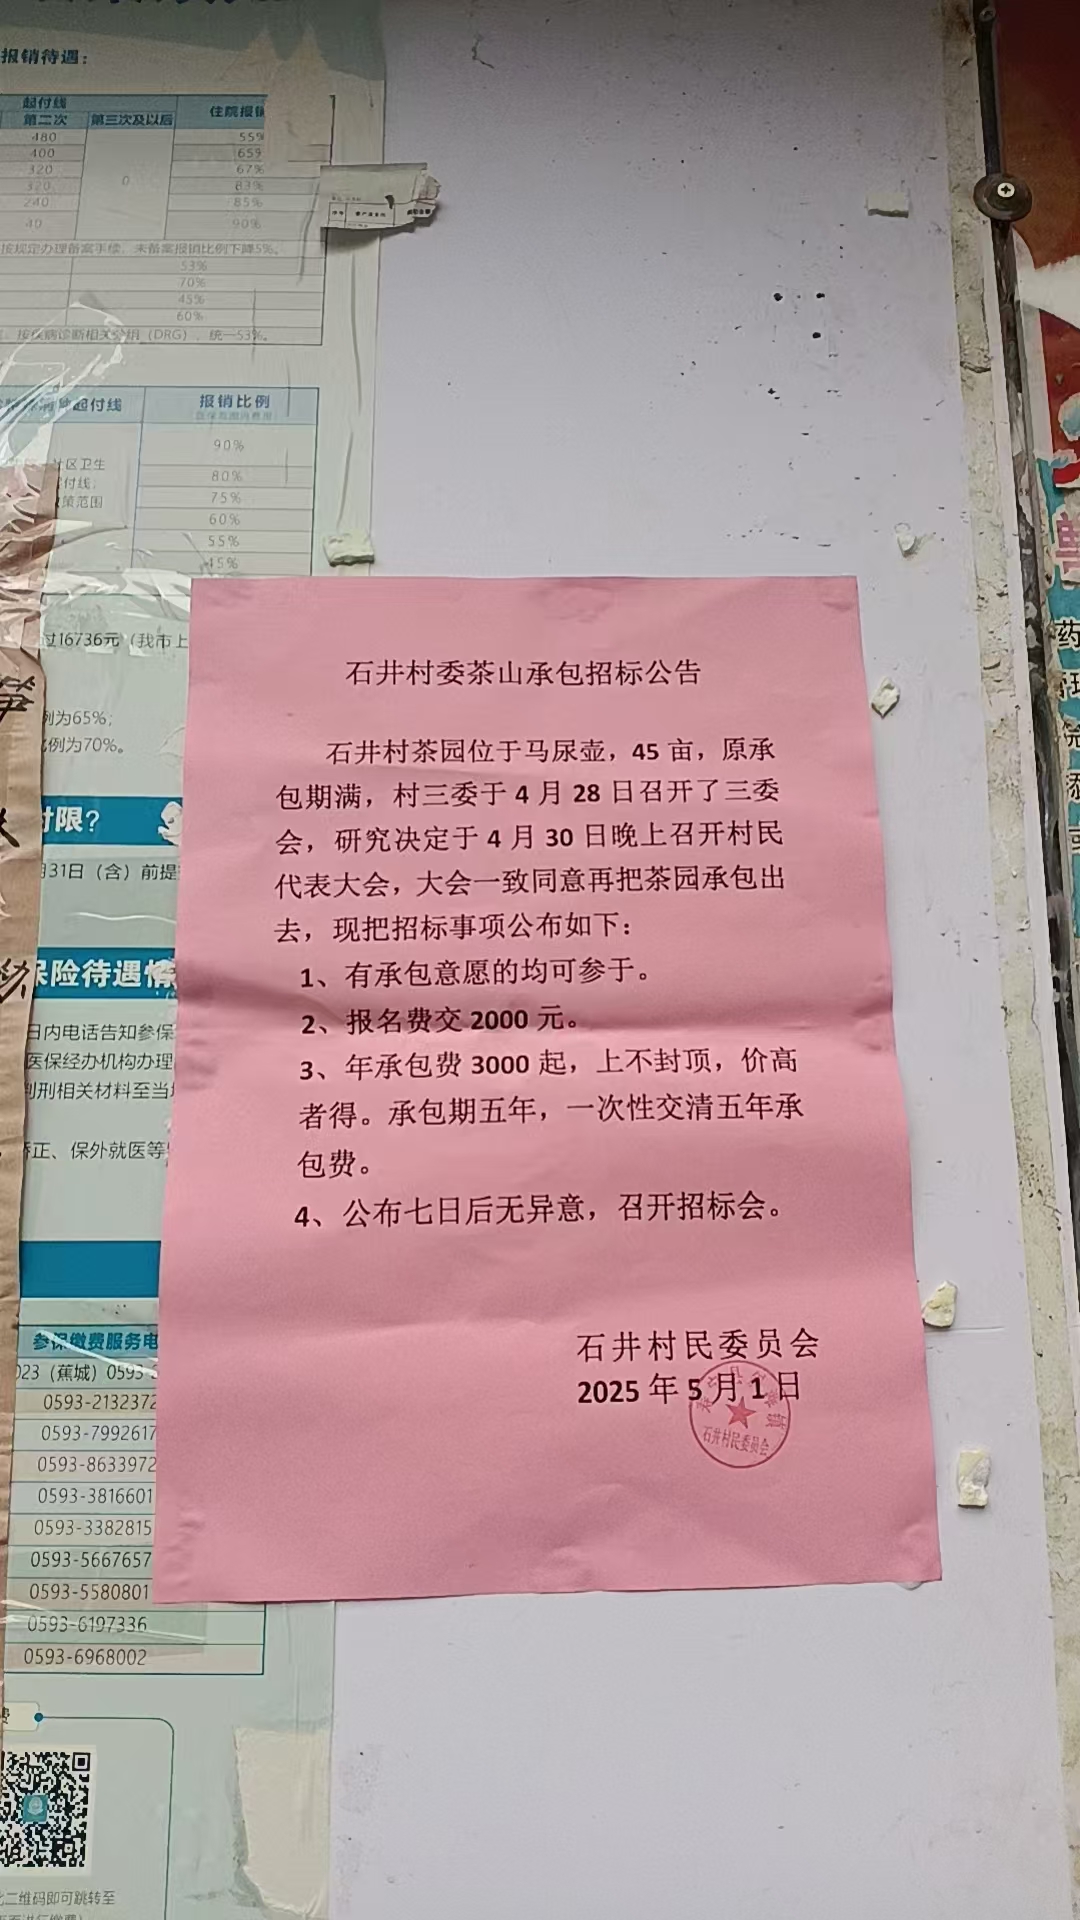 报销待遇：
起付线
住院报销
第二次
第三次及以后
480
55%
400
65%
320
0
67%
320
83%
240
85%
40
90%
按规定办理备案手续，未备案报销比例下降5%。
53%
70%
45%
60%
按疾病诊断相关分组（DRG），统一53%。
起付线
报销比例
90%
社区卫生
80%
付线；
75%
政策范围
60%
55%
45%
过16736元（我市上
例为65%；
比例为70%。
时限？
月31日（含）前提
保险待遇情
日内电话告知参保
医保经办机构办理
判刑相关材料至当
矫正、保外就医等
参保缴费服务电
023（蕉城）0593-
0593-2132372
0593-7992617
0593-8633972
0593-3816601
0593-3382815
0593-5667657
0593-5580801
0593-6197336
0593-6968002
费
二维码即可跳转至
石井村委茶山承包招标公告
石井村茶园位于马尿壶，45 亩，原承
包期满，村三委于 4 月 28 日召开了三委
会，研究决定于 4 月 30 日晚上召开村民
代表大会，大会一致同意再把茶园承包出
去，现把招标事项公布如下：
1、有承包意愿的均可参于。
2、报名费交 2000 元。
3、年承包费 3000 起，上不封顶，价高
者得。承包期五年，一次性交清五年承
包费。
4、公布七日后无异意，召开招标会。
石井村民委员会
2025 年 5 月 1 日
石井村民委员会
药